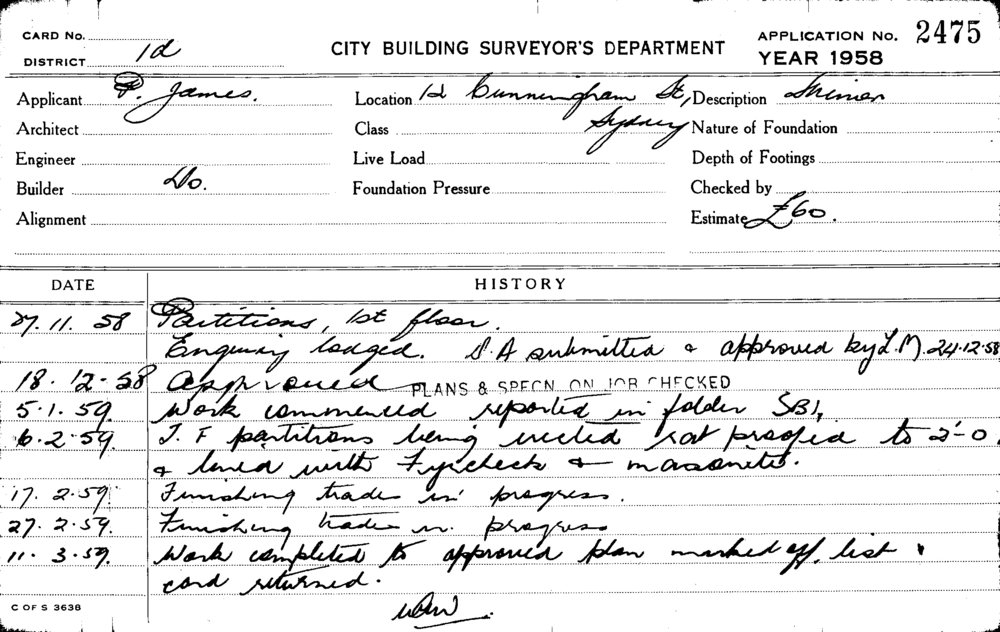 CARD No.
DISTRICT 1d
CITY BUILDING SURVEYOR'S DEPARTMENT
APPLICATION No. 2475
YEAR 1958
Applicant P. James. Location 1d Cunningham St, Sydney Description Minor
Architect Class Nature of Foundation
Engineer Live Load Depth of Footings
Builder Do. Foundation Pressure Checked by
Alignment Estimate £60.
DATE HISTORY
27.11.58 Partitions, 1st floor.
Enquiry lodged. S.A submitted & approved by L.M. 24.12.58
18.12.58 Approved PLANS & SPECN. ON JOB CHECKED
5.1.59 Work commenced reported in folder SB1,
6.2.59. T.F partitions being erected rat proofed to 2'-0
& lined with Fyrcheck & masonite.
17.2.59. Finishing trades in progress.
27.2.59. Finishing trades in progress
11.3.59. Work completed to approved plan marked off list &
card returned.
C OF S 3638